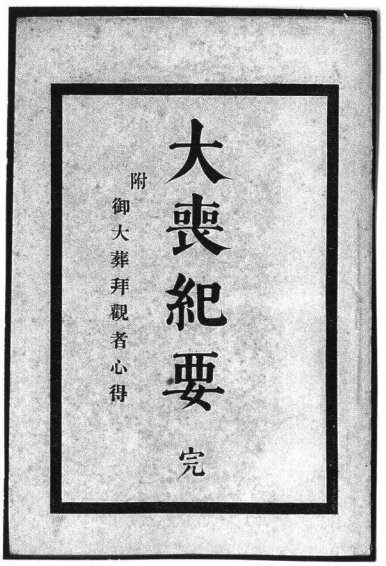 大喪紀要 完
附
御大葬拜觀者心得